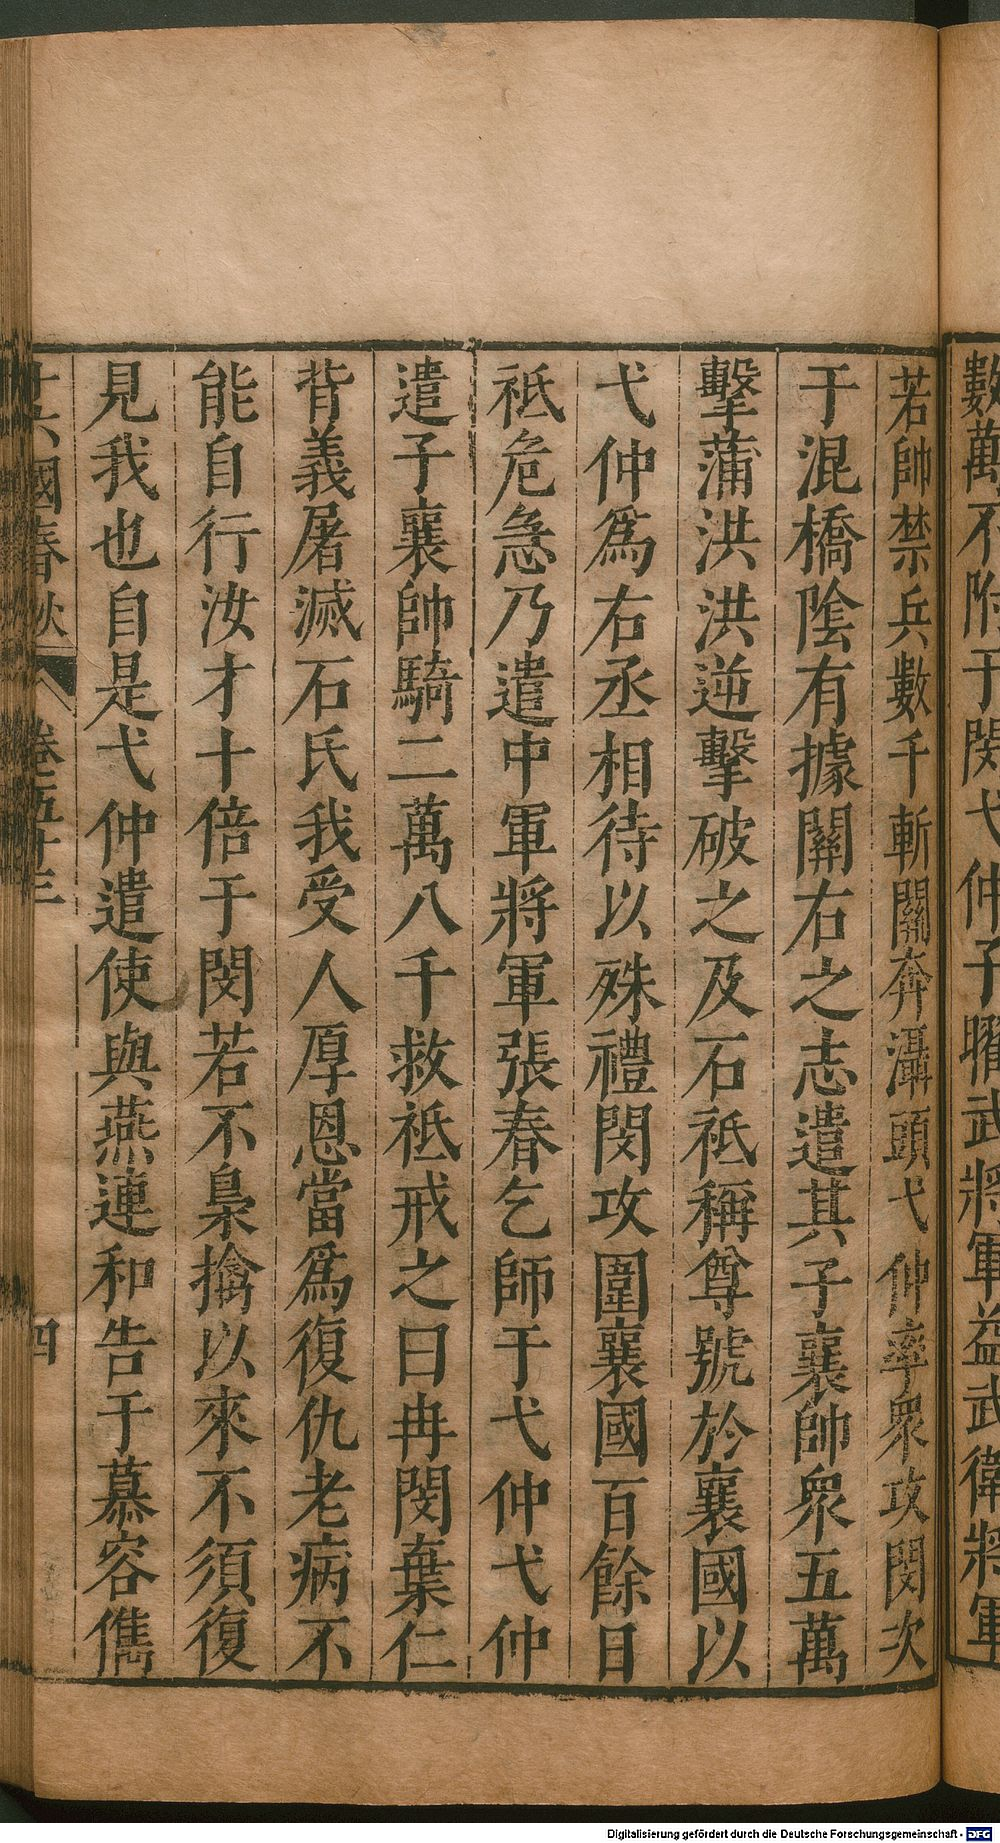 數萬不附于閔弋仲子曜武將軍益武衛將軍
若帥禁兵數千斬關奔灄頭弋仲率衆攻閔次
于混橋陰有據關右之志遣其子襄帥衆五萬
擊蒲洪洪逆擊破之及石祗稱尊號於襄國以
弋仲爲右丞相待以殊禮閔攻圍襄國百餘日
祗危急乃遣中軍將軍張春乞師于弋仲弋仲
遣子襄帥騎二萬八千救祗戒之曰冉閔棄仁
背義屠滅石氏我受人厚恩當爲復仇老病不
能自行汝才十倍于閔若不梟擒以來不須復
見我也自是弋仲遣使與燕連和告于慕容儁
十六國春秋 卷五十三 四
Digitalisierung gefördert durch die Deutsche Forschungsgemeinschaft - DFG